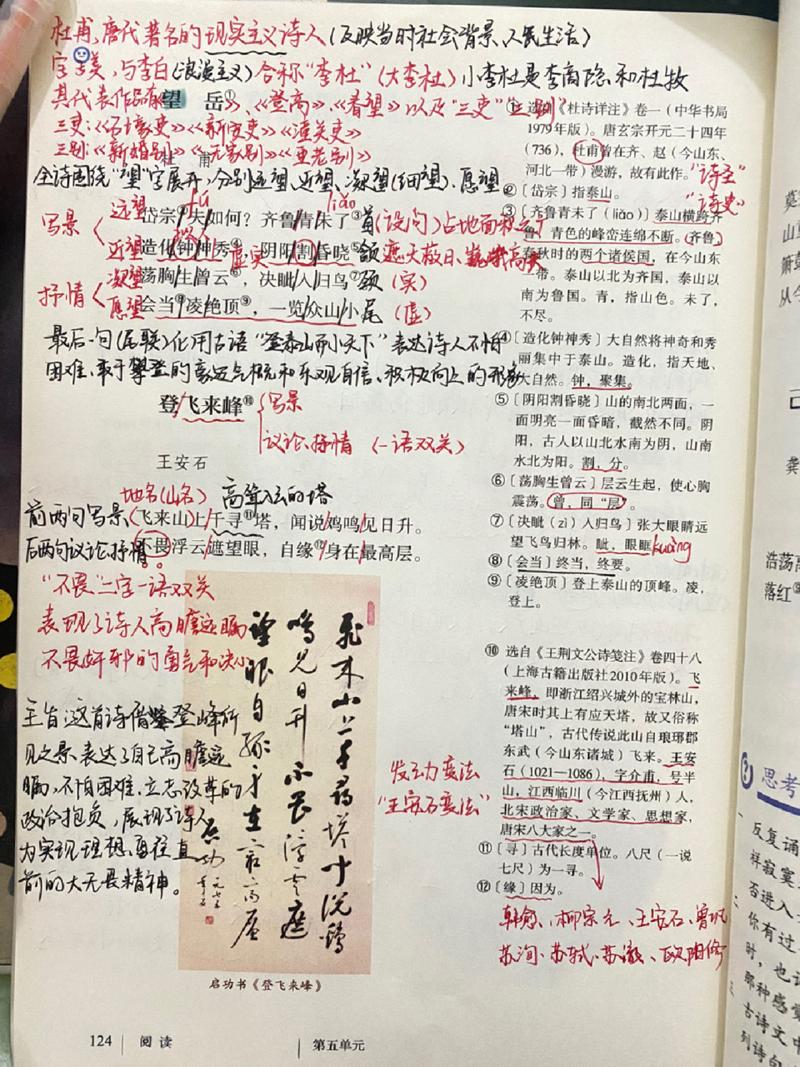 杜甫,唐代著名的现实主义诗人(反映当时社会背景、人民生活)
字子美,与李白(浪漫主义)合称"李杜"(大李杜)小李杜是李商隐和杜牧
其代表作品有《望岳》、《登高》、《春望》以及"三吏""三别"
三吏:《石壕吏》《新安吏》《潼关吏》
三别:《新婚别》《无家别》《垂老别》
望 岳①
杜 甫
全诗围绕"望"字展开,分别远望、近望、凝望(细望)、愿望
写景
远望
岱宗②夫如何?齐鲁青未了③
fú
liǎo
首(设问)占地面积之广
近望
造化钟神秀④,阴阳割昏晓⑤
虚实
颔 遮天蔽日、巍峨高大
抒情
凝望
荡胸生曾云⑥,决眦入归鸟⑦
颈(实)
愿望
会当⑧凌绝顶⑨,一览众山小
尾(虚)
最后一句(尾联)化用古语"登泰山而小天下"表达诗人不怕
困难、敢于攀登的豪迈气概和乐观自信、积极向上的形象
登飞来峰⑩
写景
议论、抒情(一语双关)
王安石
地名(山名) 高耸入云的塔
前两句写景
飞来山上千寻⑪塔,闻说鸡鸣见日升。
后两句议论抒情
不畏浮云遮望眼,自缘⑫身在最高层。
"不畏"二字一语双关
表现了诗人高瞻远瞩
不畏奸邪的勇气和决心
主旨:这首诗借登峰所
见之景表达了自己高瞻远
瞩,不怕困难、立志改革的
政治抱负,展现了诗人
为实现理想、勇往直
前的大无畏精神。
飞来山上千寻塔闻说鸡
鸣见日升不畏浮云遮
望眼自缘身在最高层
启功
启功书《登飞来峰》
① 选自《杜诗详注》卷一(中华书局
1979年版)。唐玄宗开元二十四年
(736),杜甫曾在齐、赵(今山东、
河北一带)漫游,故有此作。
"诗圣"
"诗史"
② 〔岱宗〕指泰山。
③ 〔齐鲁青未了(liǎo)〕泰山横跨齐
鲁,青色的峰峦连绵不断。齐鲁,
春秋时的两个诸侯国,在今山东
一带。泰山以北为齐国,泰山以
南为鲁国。青,指山色。未了,
不尽。
④ 〔造化钟神秀〕大自然将神奇和秀
丽集中于泰山。造化,指天地、
大自然。钟,聚集。
⑤ 〔阴阳割昏晓〕山的南北两面,一
面明亮一面昏暗,截然不同。阴
阳,古人以山北水南为阴,山南
水北为阳。割,分。
⑥ 〔荡胸生曾云〕层云生起,使心胸
震荡。曾,同"层"。
⑦ 〔决眦(zì)入归鸟〕张大眼睛远
望飞鸟归林。眦,眼眶
kuàng
⑧ 〔会当〕终当,终要。
⑨ 〔凌绝顶〕登上泰山的顶峰。凌,
登上。
⑩ 选自《王荆文公诗笺注》卷四十八
(上海古籍出版社2010年版)。飞
来峰,即浙江绍兴城外的宝林山,
唐宋时其上有应天塔,故又俗称
"塔山",古代传说此山自琅琊郡
东武(今山东诸城)飞来。王安
石(1021—1086),字介甫,号半
山,江西临川(今江西抚州)人,
北宋政治家、文学家、思想家,
唐宋八大家之一。
发动变法
"王安石变法"
⑪ 〔寻〕古代长度单位。八尺(一说
七尺)为一寻。
⑫ 〔缘〕因为。
韩愈、柳宗元、王安石、曾巩
苏洵、苏轼、苏辙、欧阳修
124 阅读
第五单元
思考
反复诵